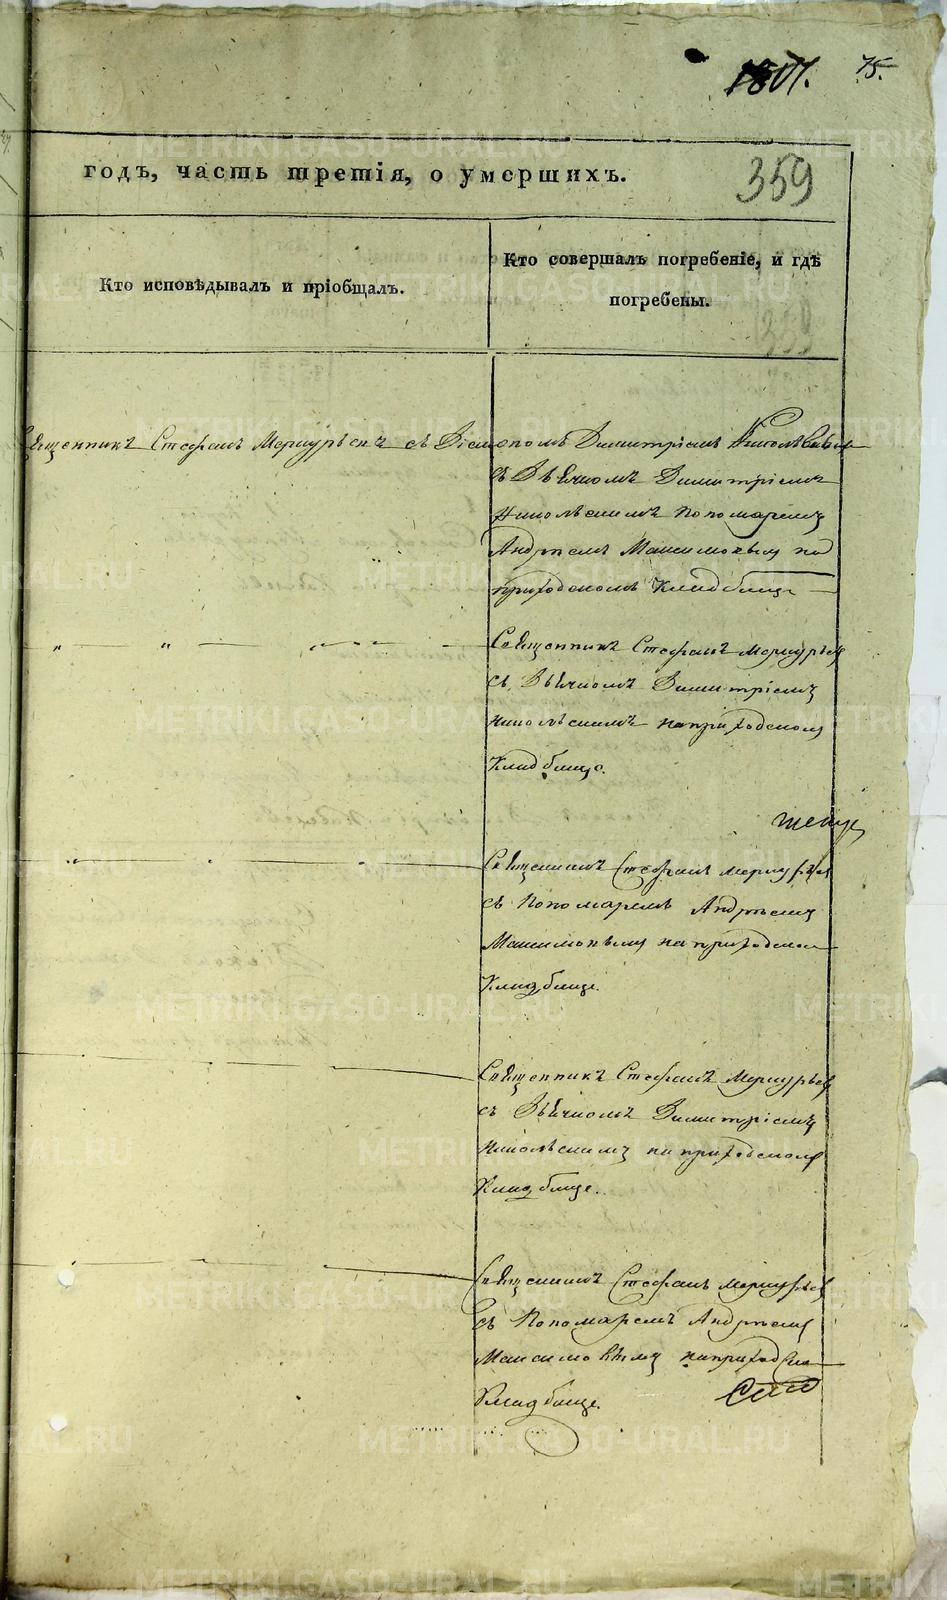 75.
359
годъ, часть третія, о умершихъ.
Кто исповѣдывалъ и пріобщалъ.
Кто совершалъ погребеніе, и гдѣ
погребены.
Священникъ Стефанъ Меркурьевъ съ Діакономъ Димитріемъ
съ Дьячкомъ Димитріемъ
Никольскимъ Пономаремъ
Андреемъ Максимовымъ на
приходскомъ Кладбище
Священникъ Стефанъ Меркурьев
съ Дьячкомъ Димитріемъ
Никольскимъ на приходском
Кладбище.
Священникъ Стефанъ Меркурьев
съ Пономаремъ Андреемъ
Максимовымъ на приходском
Кладбище.
Священникъ Стефанъ Меркурьев
съ Дьячкомъ Димитріемъ
Никольскимъ на приходском
Кладбище.
Священникъ Стефанъ Меркурьев
съ Пономаремъ Андреемъ
Максимовымъ на приходско
Кладбище.
METRIKI.GASO-URAL.RU